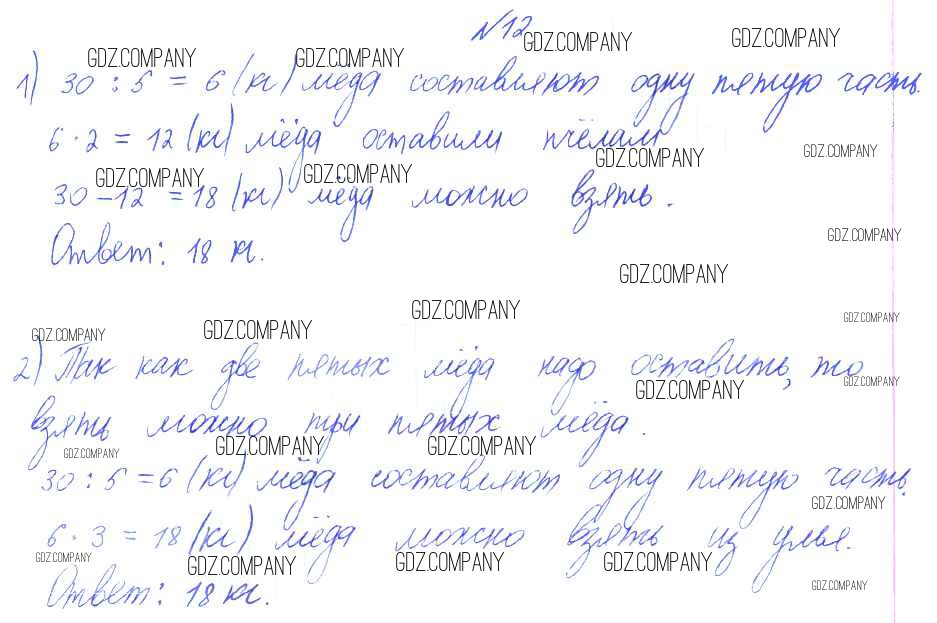 №12
GDZ.COMPANY GDZ.COMPANY GDZ.COMPANY GDZ.COMPANY
1) 30 : 5 = 6 (кг) мёда составляют одну пятую часть.
6 · 2 = 12 (кг) мёда оставили пчёлам
GDZ.COMPANY GDZ.COMPANY GDZ.COMPANY GDZ.COMPANY
30 – 12 = 18 (кг) мёда можно взять.
GDZ.COMPANY
Ответ: 18 кг.
GDZ.COMPANY
GDZ.COMPANY GDZ.COMPANY
GDZ.COMPANY GDZ.COMPANY
2) Так как две пятых мёда надо оставить, то
GDZ.COMPANY GDZ.COMPANY
взять можно три пятых мёда.
GDZ.COMPANY GDZ.COMPANY GDZ.COMPANY
30 : 5 = 6 (кг) мёда составляют одну пятую часть.
GDZ.COMPANY
6 · 3 = 18 (кг) мёда можно взять из улья.
GDZ.COMPANY GDZ.COMPANY GDZ.COMPANY GDZ.COMPANY
Ответ: 18 кг.
GDZ.COMPANY